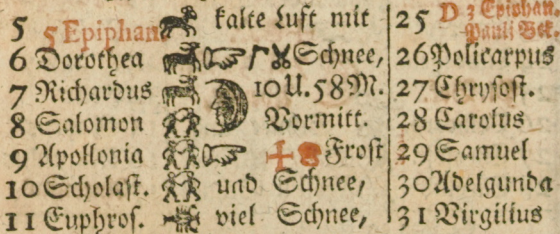 5 5 Epiphan. kalte Luft mit 25 D 3 Epiphan.
Pauli Bek.
6 Dorothea Schnee, 26 Policarpus
7 Richardus 10 U. 58 M. 27 Chrysost.
8 Salomon Vormitt. 28 Carolus
9 Apollonia Frost 29 Samuel
10 Scholast. und Schnee, 30 Adelgunda
11 Euphros. viel Schnee, 31 Virgilius